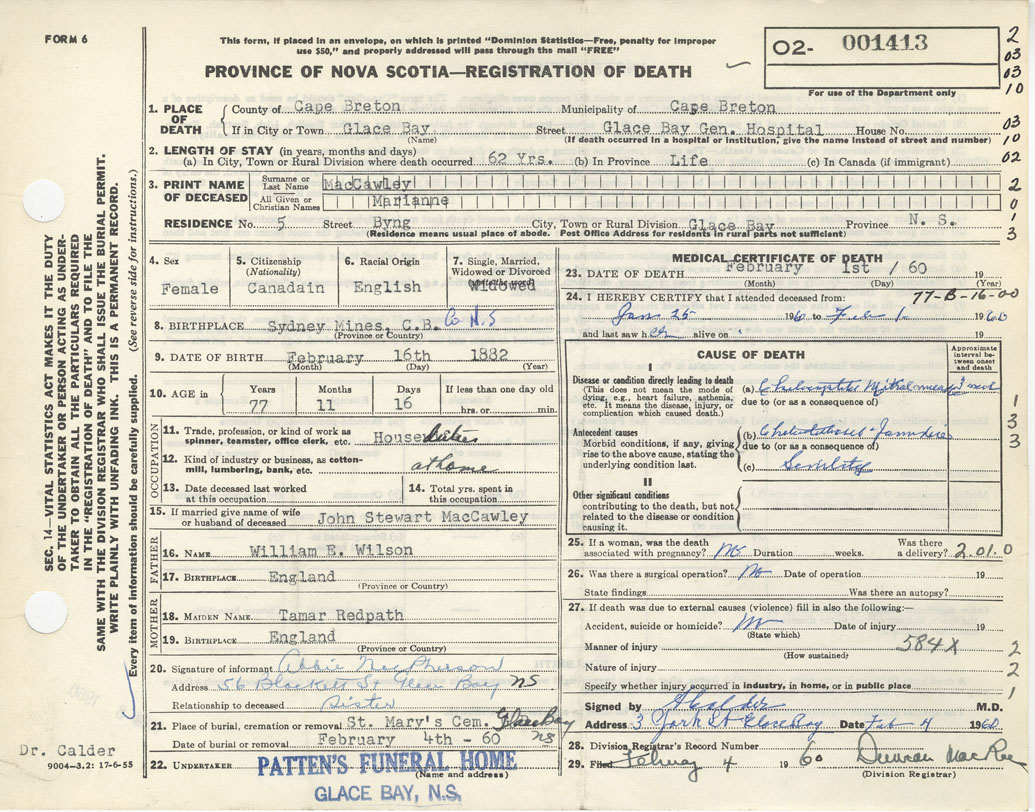 FORM 6
This form, if placed in an envelope, on which is printed "Dominion Statistics—Free, penalty for improper
use $50," and properly addressed will pass through the mail "FREE"
PROVINCE OF NOVA SCOTIA—REGISTRATION OF DEATH
02- 001413
For use of the Department only
2
03
03
10
03
10
02
2
0
1
3
1. PLACE OF DEATH
County of Cape Breton Municipality of Cape Breton
If in City or Town Glace Bay Street Glace Bay Gen. Hospital House No.
(Name) (If death occurred in a hospital or institution, give the name instead of street and number)
2. LENGTH OF STAY (in years, months and days)
(a) In City, Town or Rural Division where death occurred 62 Yrs. (b) In Province Life (c) In Canada (if immigrant)
3. PRINT NAME OF DECEASED
Surname or Last Name MacCawley
All Given or Christian Names Marianne
RESIDENCE No. 5 Street Byng City, Town or Rural Division Glace Bay Province N. S.
(Residence means usual place of abode. Post Office Address for residents in rural parts not sufficient)
4. Sex
Female
5. Citizenship
(Nationality)
Canadain
6. Racial Origin
English
7. Single, Married,
Widowed or Divorced
Widowed
8. BIRTHPLACE Sydney Mines, C.B. Co N.S
(Province or Country)
9. DATE OF BIRTH February 16th 1882
(Month) (Day) (Year)
10. AGE in
Years Months Days If less than one day old
77 11 16 hrs. or min.
OCCUPATION
11. Trade, profession, or kind of work as
spinner, teamster, office clerk, etc. House duties
12. Kind of industry or business, as cotton-
mill, lumbering, bank, etc. at home
13. Date deceased last worked
at this occupation
14. Total yrs. spent in
this occupation
15. If married give name of wife
or husband of deceased John Stewart MacCawley
FATHER
16. NAME William E. Wilson
17. BIRTHPLACE England
(Province or Country)
MOTHER
18. MAIDEN NAME Tamar Redpath
19. BIRTHPLACE England
(Province or Country)
20. Signature of informant Abbie MacPherson
Address 56 Blackett St Glace Bay NS
Relationship to deceased Sister
21. Place of burial, cremation or removal St. Mary's Cem. Glace Bay
Date of burial or removal February 4th - 60 NS
22. UNDERTAKER PATTEN'S FUNERAL HOME
(Name and address)
GLACE BAY, N.S.
MEDICAL CERTIFICATE OF DEATH
23. DATE OF DEATH February 1st / 60 19
(Month) (Day) (Year)
24. I HEREBY CERTIFY that I attended deceased from: 77-B-16-00
Jan 25 1960 to Feb 1 1960
and last saw her alive on 19
CAUSE OF DEATH
Approximate interval between onset and death
I
Disease or condition directly leading to death
(This does not mean the mode of
dying, e.g., heart failure, asthenia,
etc. It means the disease, injury, or
complication which caused death.)
(a)
due to (or as a consequence of)
Antecedent causes
Morbid conditions, if any, giving
rise to the above cause, stating the
underlying condition last.
(b) Jaundice
due to (or as a consequence of)
(c) Senility
II
Other significant conditions
contributing to the death, but not
related to the disease or condition
causing it.
1
3
3
25. If a woman, was the death
associated with pregnancy? No Duration weeks. Was there
a delivery? 2.01.0
26. Was there a surgical operation? No Date of operation 19
State findings Was there an autopsy?
27. If death was due to external causes (violence) fill in also the following:—
Accident, suicide or homicide? No Date of injury 19
(State which)
Manner of injury 584X
(How sustained)
Nature of injury
Specify whether injury occurred in industry, in home, or in public place
2
2
1
Signed by A Calder M.D.
Address 3 York St Glace Bay Date Feb 4 1960
28. Division Registrar's Record Number
29. Filed February 4 1960 Duncan MacRae
(Division Registrar)
SEC. 14—VITAL STATISTICS ACT MAKES IT THE DUTY
OF THE UNDERTAKER OR PERSON ACTING AS UNDER-
TAKER TO OBTAIN ALL THE PARTICULARS REQUIRED
IN THE "REGISTRATION OF DEATH" AND TO FILE THE
SAME WITH THE DIVISION REGISTRAR WHO SHALL ISSUE THE BURIAL PERMIT.
WRITE PLAINLY WITH UNFADING INK. THIS IS A PERMANENT RECORD.
Every item of information should be carefully supplied. (See reverse side for instructions.)
Dr. Calder
9004-3.2: 17-6-55